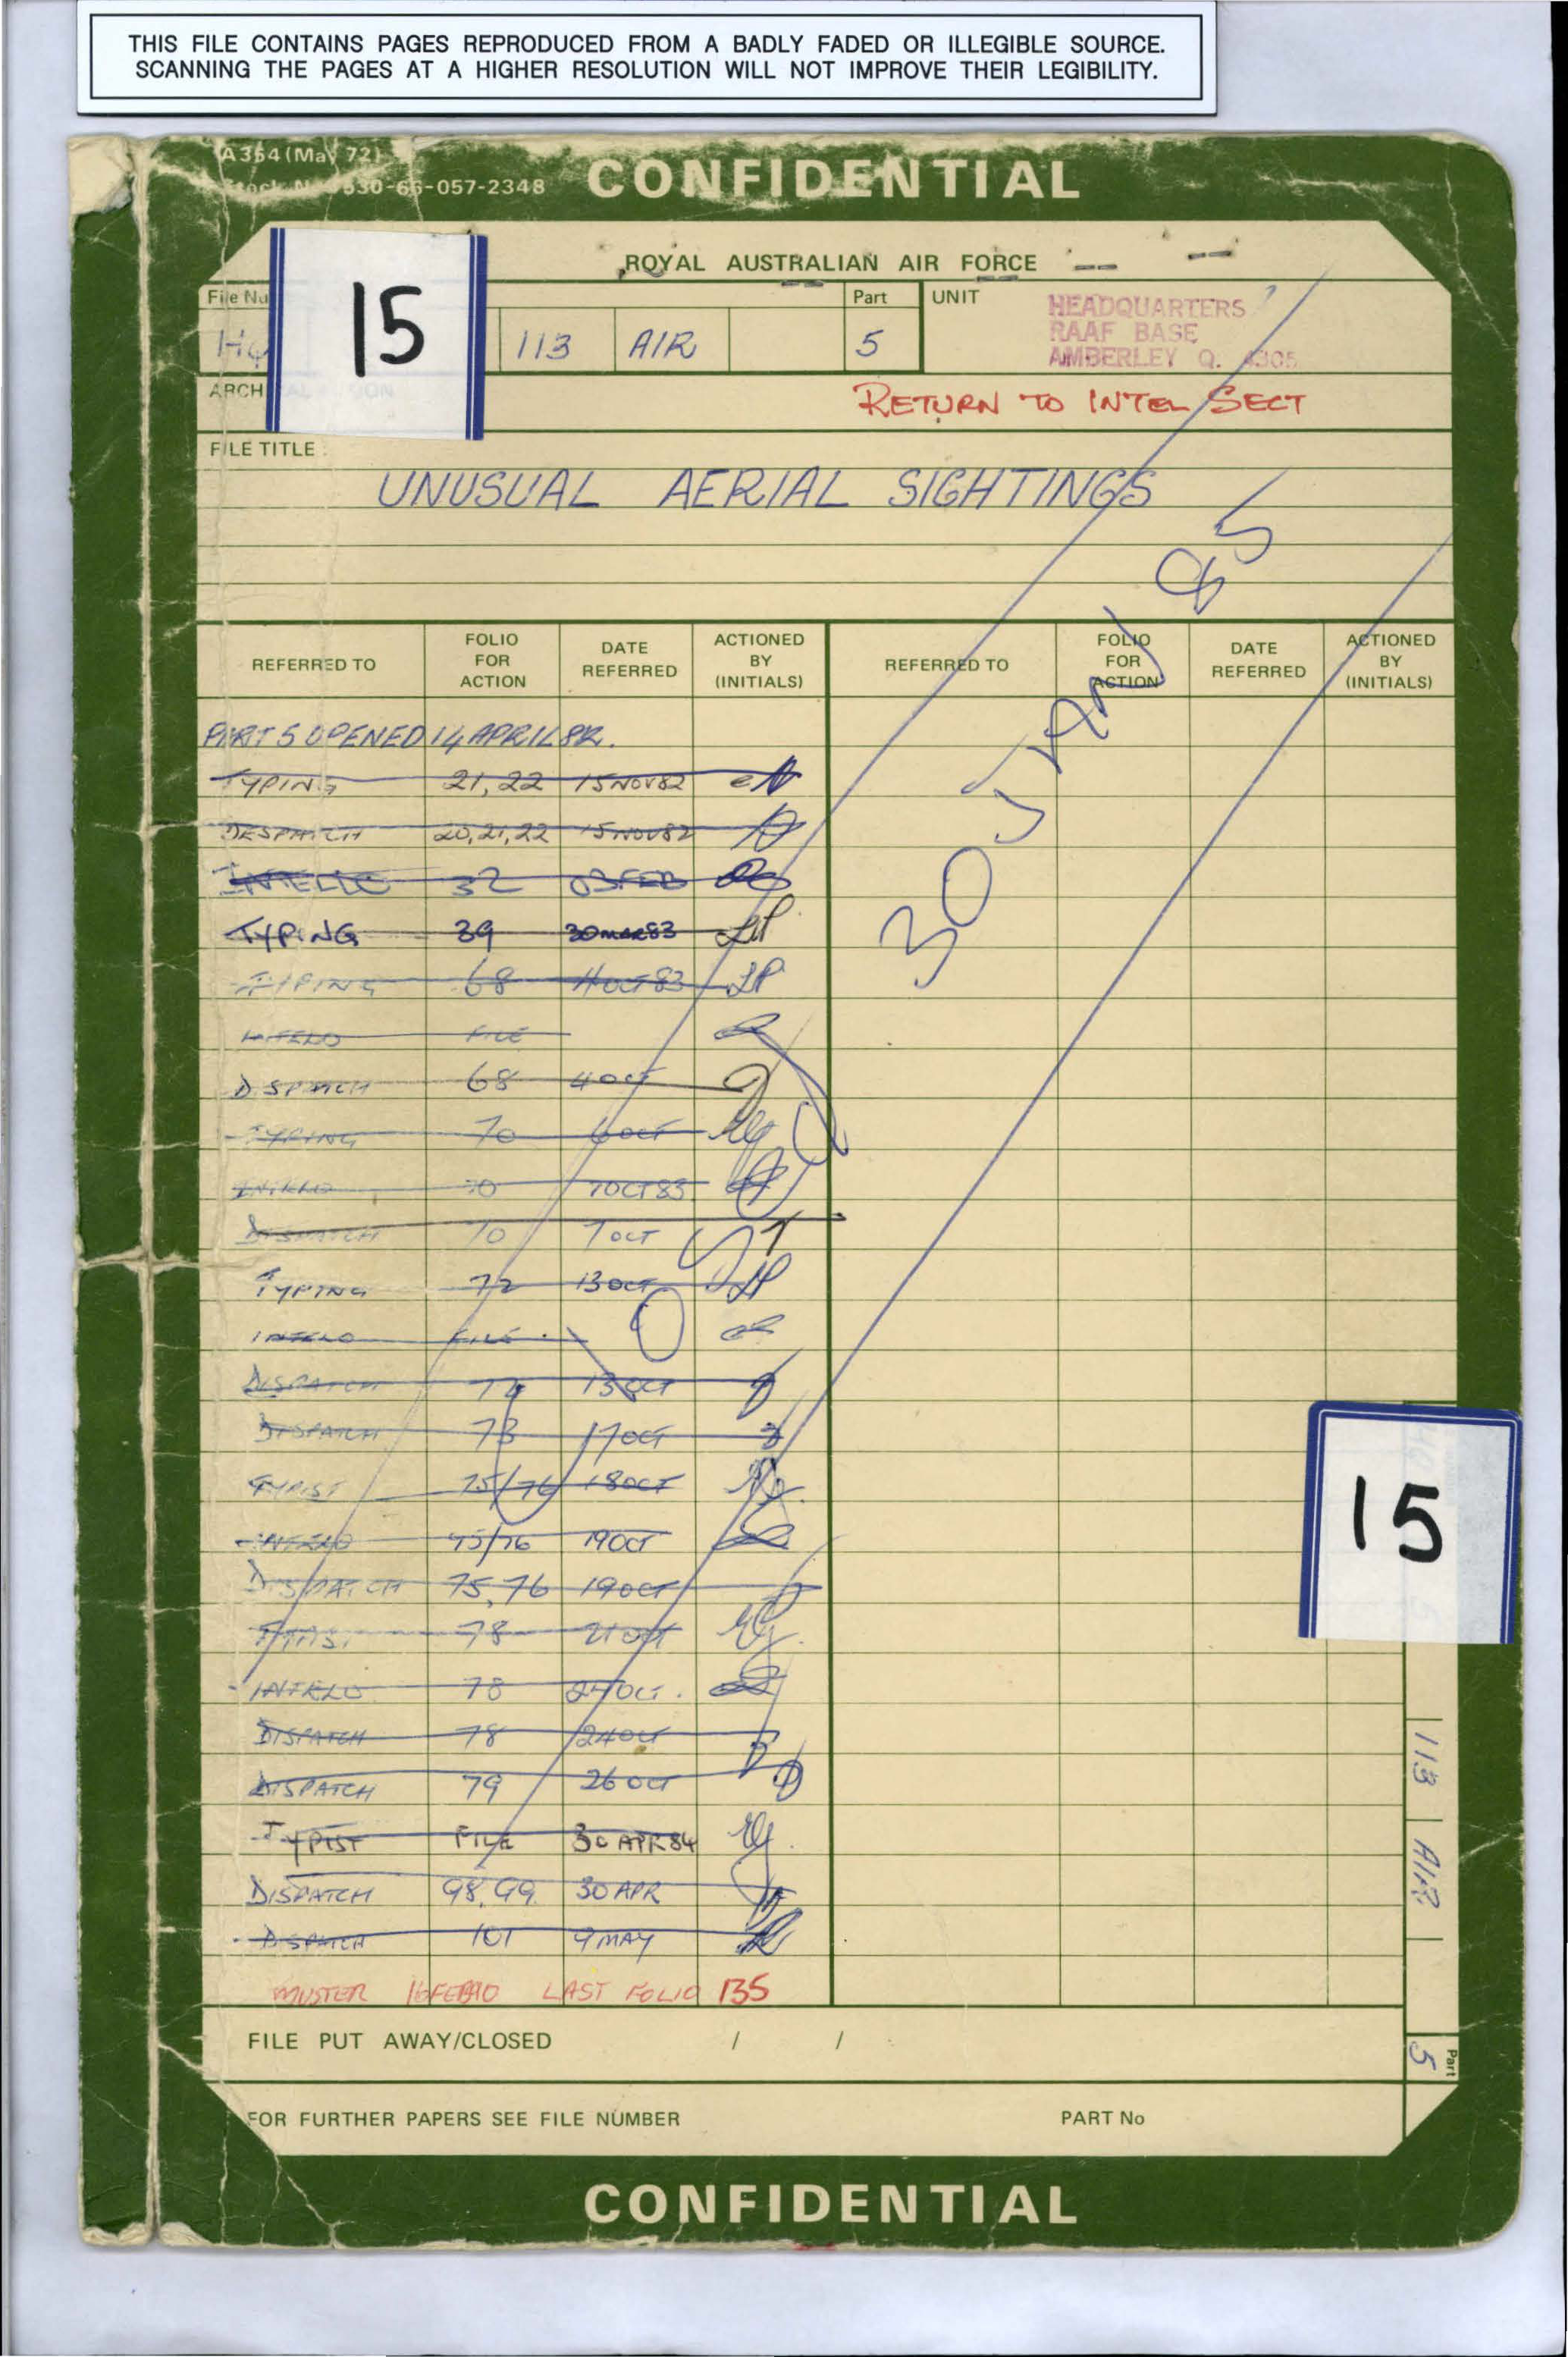 THIS FILE CONTAINS PAGES REPRODUCED FROM A BADLY FADED OR ILLEGIBLE SOURCE.
SCANNING THE PAGES AT A HIGHER RESOLUTION WILL NOT IMPROVE THEIR LEGIBILITY.
A354 (May 72)
530-66-057-2348
CONFIDENTIAL
ROYAL AUSTRALIAN AIR FORCE
File Nu
15
113 AIR
Part
5
UNIT
HEADQUARTERS
RAAF BASE
AMBERLEY Q. 4305
ARCH
RETURN TO INTEL SECT
FILE TITLE
UNUSUAL AERIAL SIGHTINGS
30 JAN 85
REFERRED TO FOLIO FOR ACTION DATE REFERRED ACTIONED BY (INITIALS) REFERRED TO FOLIO FOR ACTION DATE REFERRED ACTIONED BY (INITIALS)
PART 5 OPENED 14 APRIL 82.
TYPING 21,22 15 NOV 82
DESPATCH 20,21,22 15 NOV 82
32 03 FEB
TYPING 39 30 MAR 83 LP
TYPING 68 LP
INTELO FILE
DISPATCH 68 4 OCT
TYPING 70 6 OCT
INTELO 70 7 OCT 83
DISPATCH 70 7 OCT
TYPING 72 13 OCT LP
INTELO FILE
DISPATCH 72 13 OCT
DISPATCH 73 17 OCT
TYPIST 75/76 18 OCT
INTELO 75/76 19 OCT
DISPATCH 75,76 19 OCT
TYPIST 78 21 OCT
INTELO 78 24 OCT.
DISPATCH 78 24 OCT
DISPATCH 79 26 OCT
TYPIST FILE 30 APR 84
DISPATCH 98,99 30 APR
DISPATCH 101 9 MAY
MUSTER 16 FEB 90 LAST FOLIO 135
15
113 AIR
Part
5
FILE PUT AWAY/CLOSED / /
FOR FURTHER PAPERS SEE FILE NUMBER PART No
CONFIDENTIAL